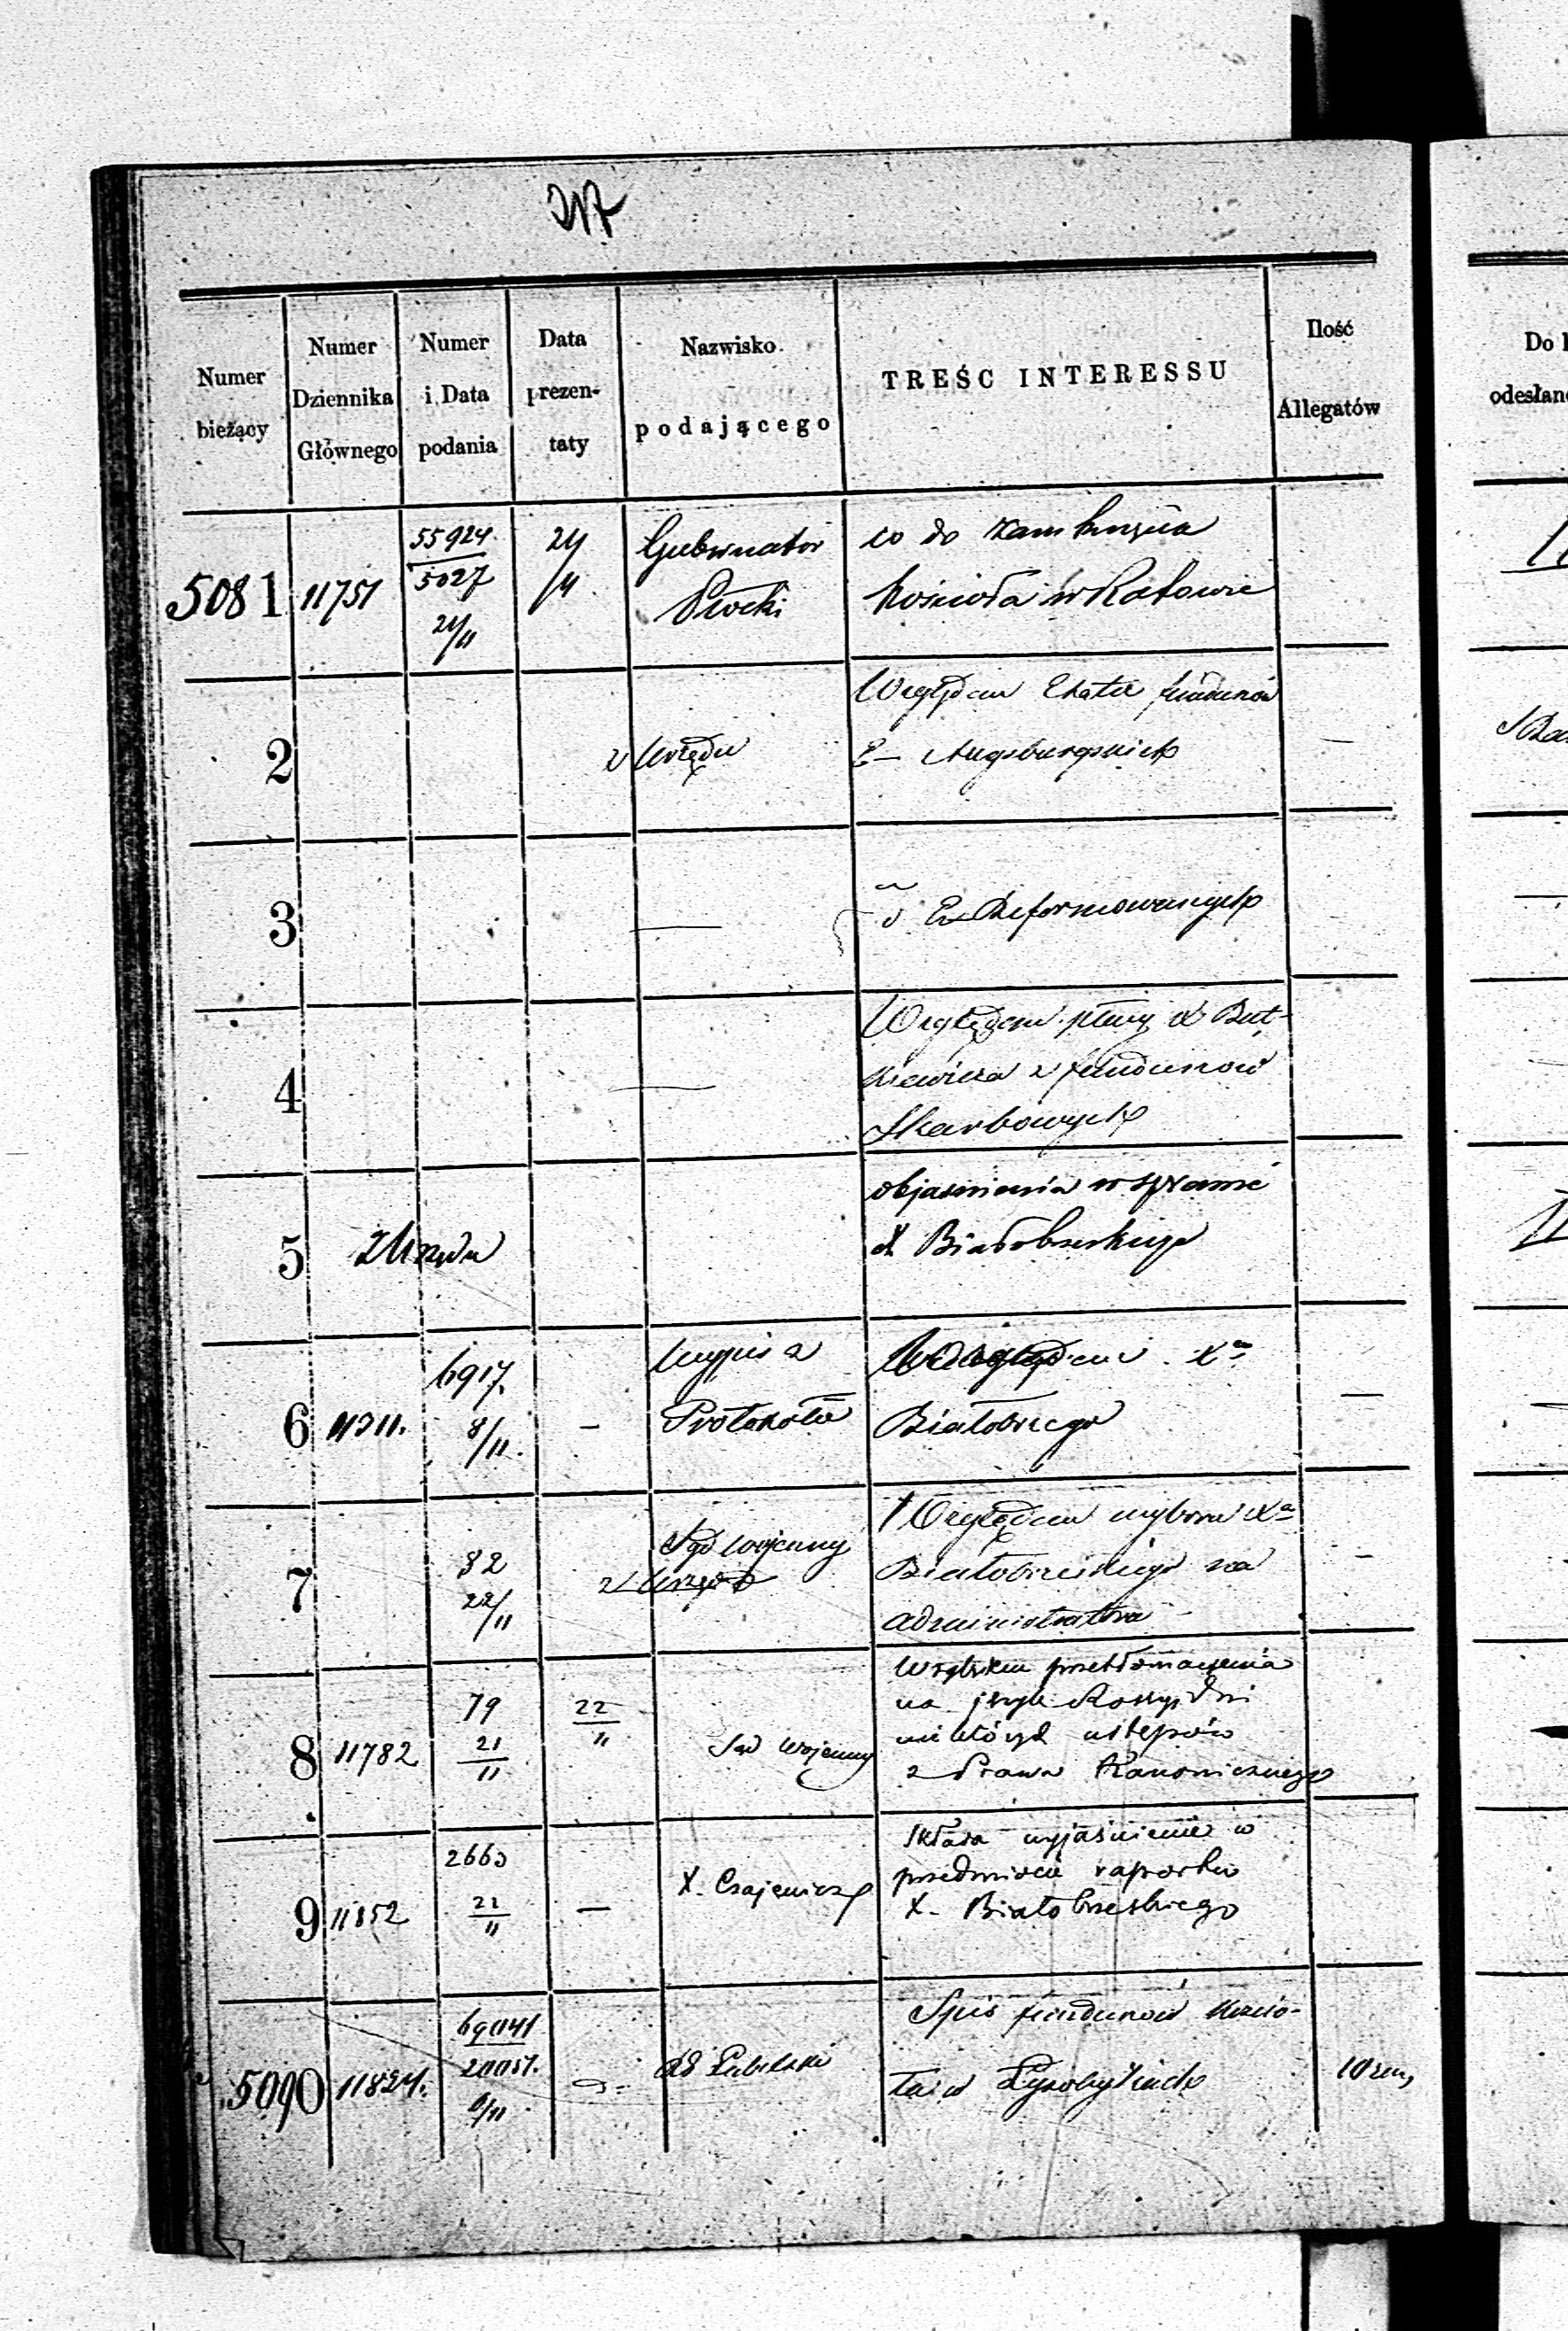 Numer bieżący
Numer Dziennika Głównego
Numer i Data podania
Data prezentaty
Nazwisko podającego
TREŚC INTERESSU
Ilość Allegatów
Do
odesłan
5081 11751 55924 5027 21/11 24 Gubernator Płocki co do zamknięcia
kościoła w Ratowie
2 z Urzędu Względem Etatu funduszów
E— Augsburgskich —
3 — E— Reformowanych
4 — Względem płacy X But-
kiewicza z funduszów
Skarbowych
5 z Urzędu objaśnienia w sprawie
X Białobrzeskiego
6 11311. 6917. 8/11. — Wypis z Protokołu Względem Xa
Białobrzego —
7 82 22/11 Sąd wojenny z Urzędu Względem wyboru Xa
Białobrzeskiego na
administratora —
8 11782 79 21/11 22/11 Sąd Wojenny Względem przetłomaczenia
na język Rossyjski
niektórych ustępów
z Prawa Kanonicznego
9 11852 2663 22/11 — X. Czajewicz Składa wyjaśnienie w
przedmiocie raportu
X. Białobrzeskiego
5090 11824. 69041 20051. 6/11 Lubelski Spis funduszów kościo-
ła w Łysobykach